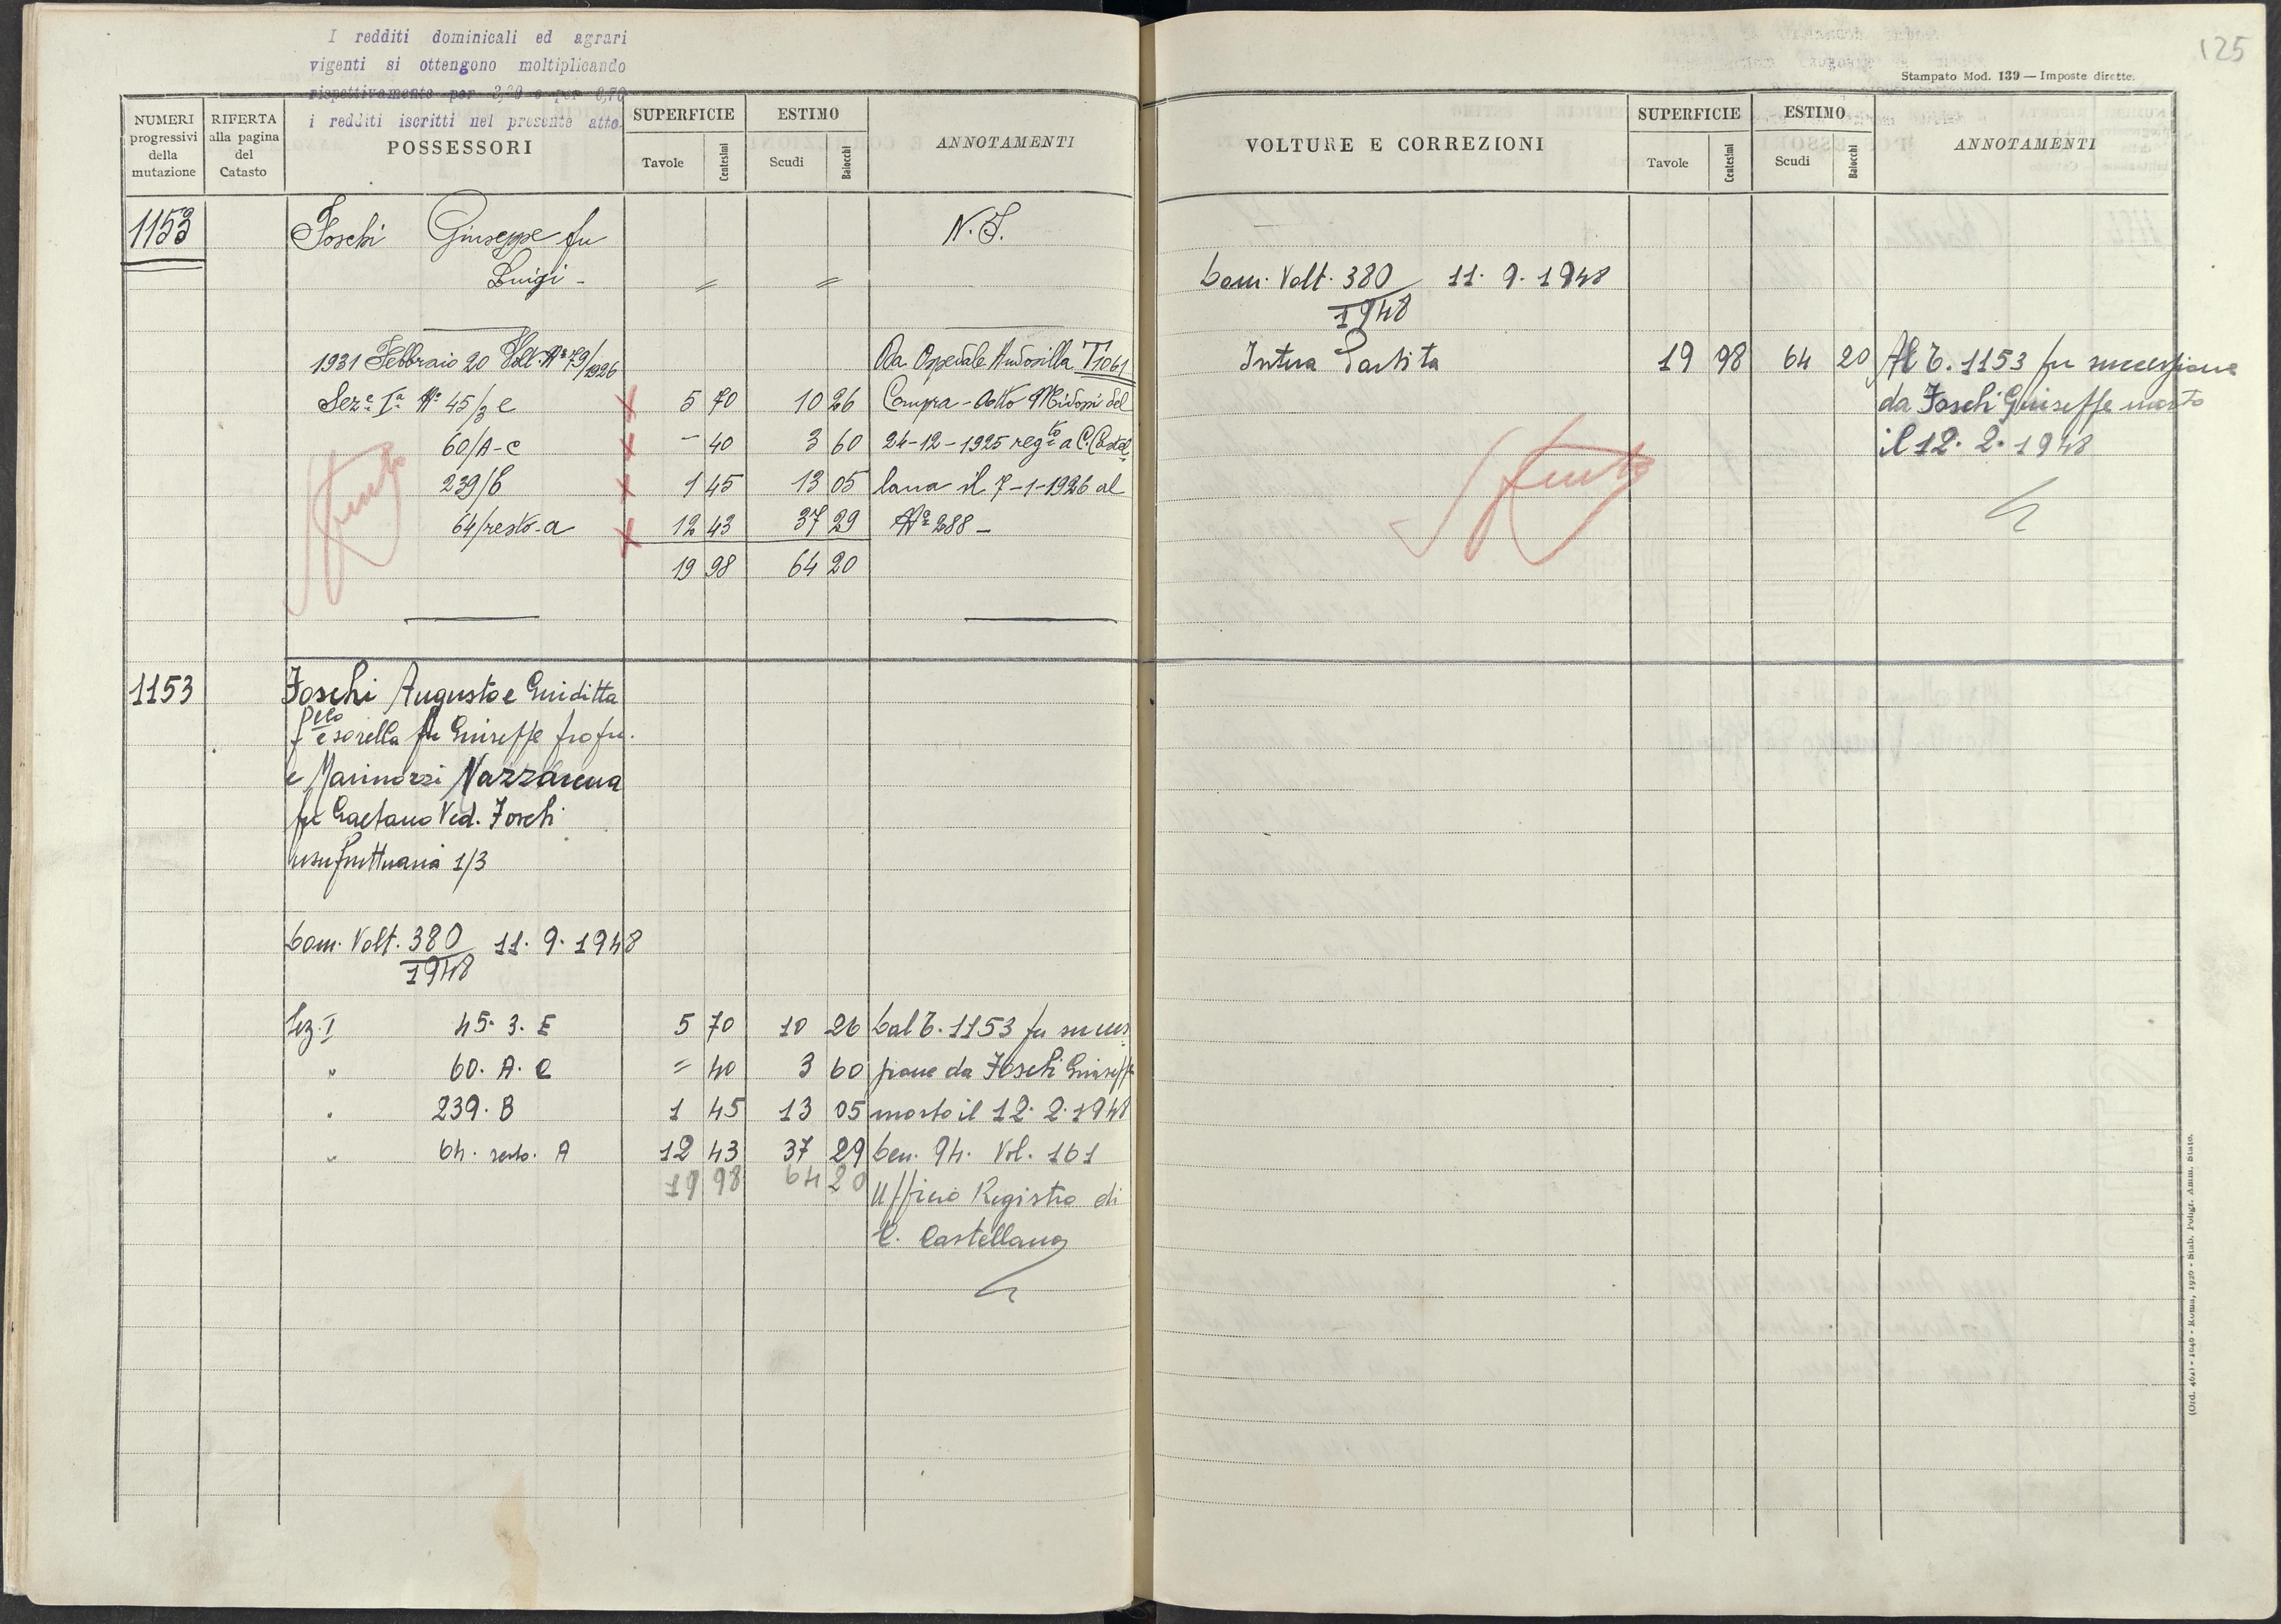 I redditi dominicali ed agrari
vigenti si ottengono moltiplicando
rispettivamente per 3,20 e per 0,70
i redditi iscritti nel presente atto.
NUMERI progressivi della mutazione
RIFERTA alla pagina del Catasto
POSSESSORI
SUPERFICIE
Tavole Centesimi
ESTIMO
Scudi Baiocchi
ANNOTAMENTI
1153 Foschi Giuseppe fu N.I.
Luigi - = =
1931 Febbraio 20 Volt. Nº 79/1926 Da Ospedale Andosilla T1061
Sez.e Iª Nº 45/3 e x 5 70 10 26 Compra - Atto Midossi del
60/A-c x - 40 3 60 24-12-1925 regto a C. Castel
239/b x 1 45 13 05 lana il 7-1-1926 al
64/resto-a x 12 43 37 29 Nº 288 -
19 98 64 20
1153 Foschi Augusto e Giuditta
f.llo e sorella fu Giuseppe propr.
e Marinozzi Nazzarena
fu Gaetano Ved. Foschi
usufruttuaria 1/3
Dom. Volt. 380/1948 11. 9. 1948
Sez. I 45. 3. E 5 70 10 26 Dal T. 1153 per succes
" 60. A. C = 40 3 60 sione da Foschi Giuseppe
" 239. B 1 45 13 05 morto il 12. 2. 1948
" 64. resto. A 12 43 37 29 Den. 94. Vol. 161
19 98 64 20 Ufficio Registro di
C. Castellana
125
Stampato Mod. 139 — Imposte dirette.
VOLTURE E CORREZIONI
SUPERFICIE
Tavole Centesimi
ESTIMO
Scudi Baiocchi
ANNOTAMENTI
Dom. Volt. 380/1948 11. 9. 1948
Intera Partita 19 98 64 20 Al T. 1153 per successione
da Foschi Giuseppe morto
il 12. 2. 1948
(Ord. 461) - 1040 - Roma, 1926 - Stab. Poligr. Amm. Stato.